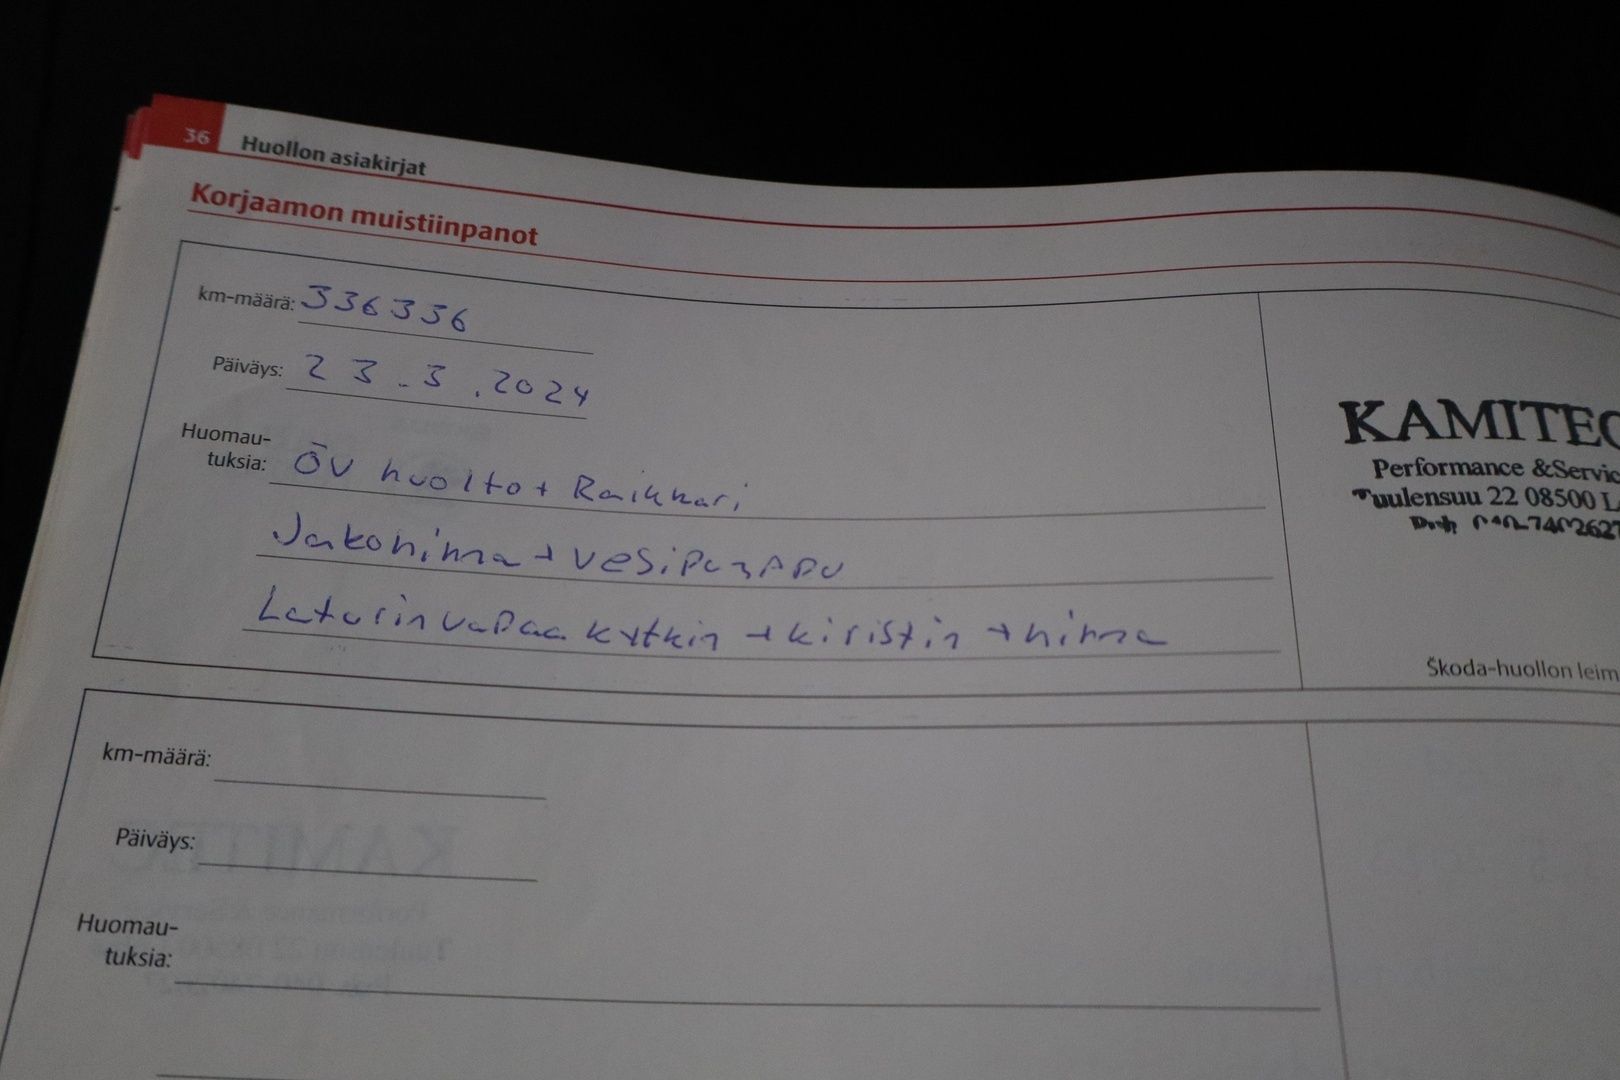 36 Huollon asiakirjat
Korjaamon muistiinpanot
km-määrä: 336336
Päiväys: 23.3.2024
Huomau-
tuksia: ÖV huolto + Raikkari
Jakohihna + vesipumppu
Laturin vapaa kytkin + kiristin + hihna
KAMITEC
Performance &Servic
Tuulensuu 22 08500 L
Škoda-huollon leim
km-määrä:
Päiväys:
Huomau-
tuksia: